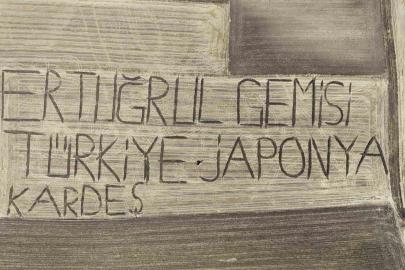 ERTUĞRUL GEMİSİ
TÜRKİYE - JAPONYA
KARDEŞ